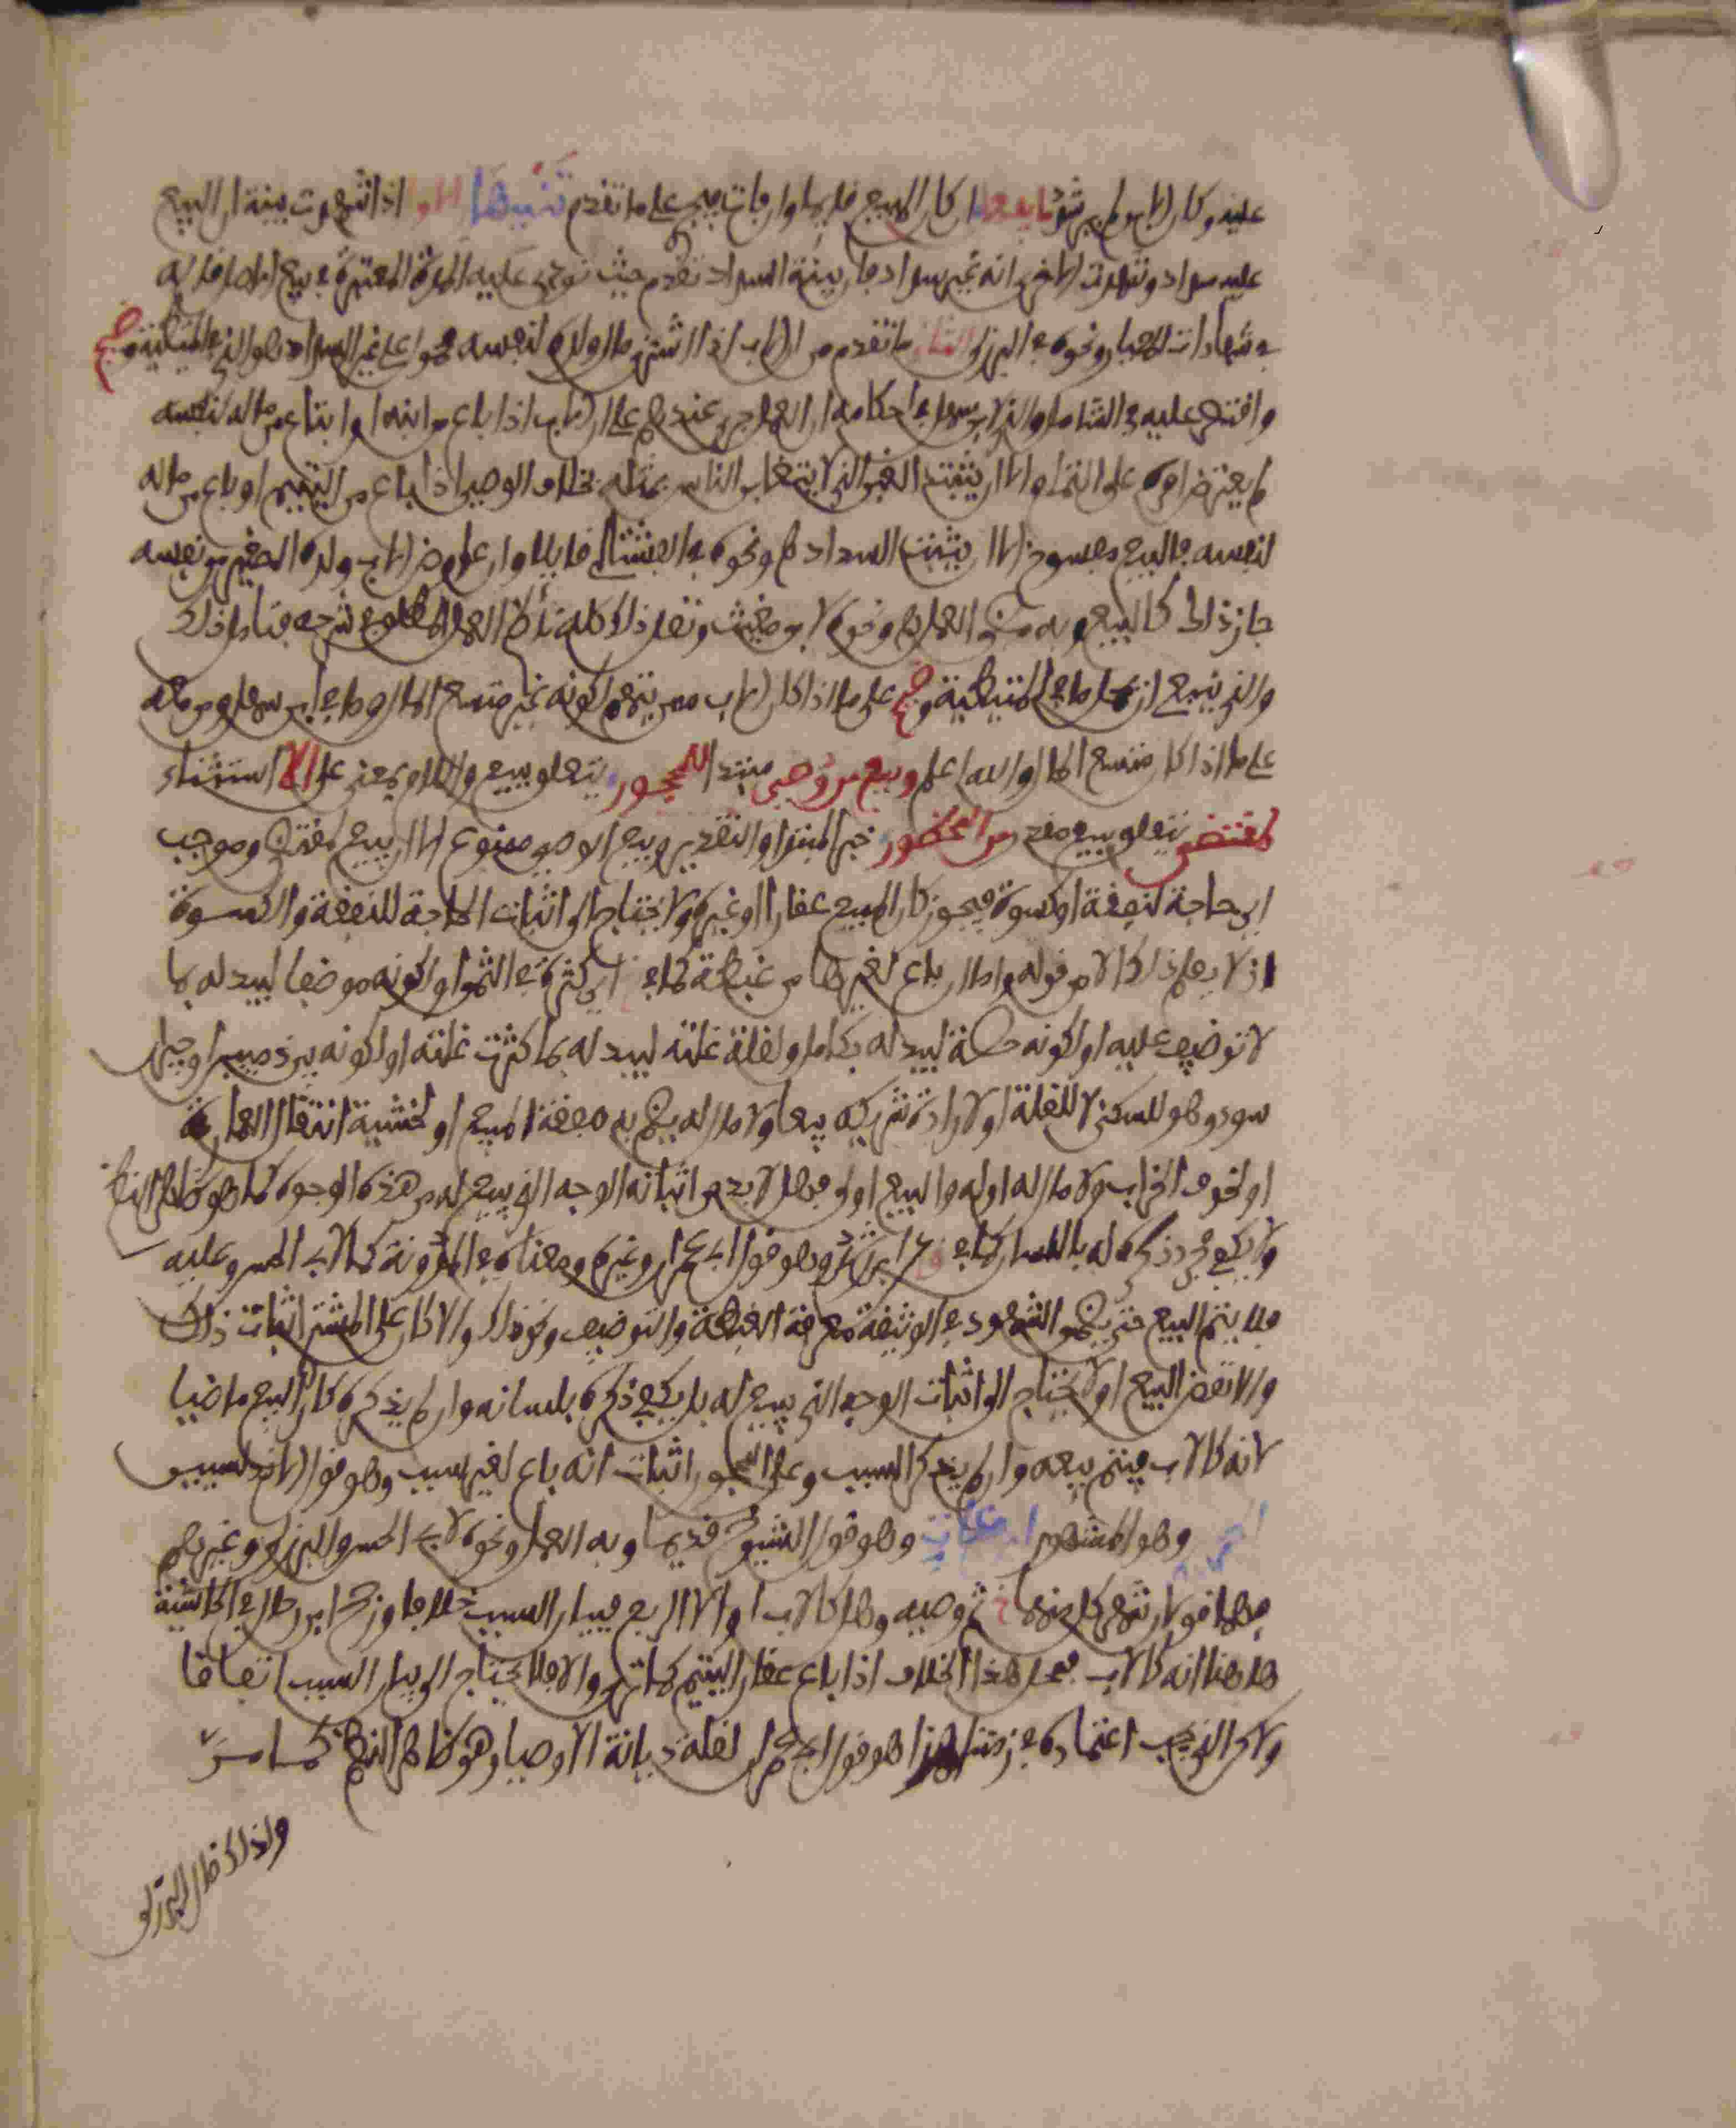 عليه وكان الاب ولم يرشد ما بعد ان كان البيع قايما وان فات على ما تقدم تنبيهات الاول اذا شهدت بينة ان البيع
عليه سداد وشهدت الاخرى انه غير سداد فان بينة السداد تقدم حيث توفرت عليه المعتبرة في بيع قاله
في شهادات المعيار ونحوه في البرزلي الثاني ما تقدم من ان الاب اذا اشترى مال ولده لنفسه محمول على غير السداد هو الذي في المتيطية وح
واقتصر عليه في الشامل والذي لابن سهل في احكامه ان العمل جرى عندهم على ان الاب اذا باع من ابنه او ابتاع من ماله لنفسه
لم يعترض امره على التمام الا ان يثبت الغبن الذي لا يتغابن الناس بمثله بخلاف الوصي اذا باع من اليتيم او باع من ماله
لنفسه فالبيع مفسوخ الا ان يثبت السداد ونحوه في الفشتالي قايلا وان عاوض الاب ولده الصغير من نفسه
جاز ذلك كالبيع وبه العمل ونحوه لابن مغيث ونقل ذلك كله العمل المطلق في شرحه فتامل ذلك
والذي ينبغي ان يحمل ما في المتيطية وح على ما اذا كان الاب ممن يتهم لكونه غير متسع المال وما في ابن سهل ومن معه
على ما اذا كان متسع المال والله اعلم وبيع من وصي مبتدا للمحجور يتعلق ببيع واللام بمعنى على الا استثناء
لمقتض يتعلق ببيع مقدر من المحظور خبر المبتدا والتقدير وبيع الوصي ممنوع الا ان يبيع لمقتض وموجب
اي حاجة لنفقة او كسوة فيجوز كان المبيع عقارا او غيره ولا يحتاج الى اثبات الحاجة للنفقة والكسوة
اذ لا يعلم ذلك الا من قوله واما ان باع لغيرها من غبطة بان اي كثرة في الثمن او لكونه موضعا ليبدله بما
لا توضيف عليه او لكونه حصة ليبدله بكامل او لقلة غلته ليبدله بما كثرت غلته او لكونه بين ذميين او جيران
سوء وهو للسكنى لا للغلة او لارادة شريكه بيعا ولا مال له يضم به صفقة المبيع او لخشية انتقال العمارة
او لخوف الخراب ولا مال له او له والبيع اولى فهل لا بد من اثباته الوجه الذي بيع له من هذه الوجوه كما هو ظاهر النظم
ولا يكفي مجرد ذكره له باللسان كما في ابن رشد وهو قول ابي عمران وغيره ومعناه في المدونة كما لابي الحسن وعليه
فلا يتم البيع حتى يضمن الشهود في الوثيقة معرفة الغبطة والتوضيف ونحو ذلك والا كان على المشتري اثبات ذلك
والا نقض البيع او لا يحتاج الى اثبات الوجه الذي بيع له بل يكفي ذكره بلسانه وان لم يذكره كان البيع ماضيا
لانه كالاب فيتم بيعه وان لم يذكر السبب وعلى المحجور اثبات انه باع لغير سبب وهو قول
وهو المشهور وهو قول الشيوخ قديما وبه العمل ونحوه لابي الحسن والبرزلي وغيرهم
فهما قولان شهر كل منهما خ ثم وصيه وهل كالاب او الا الربع فببيان السبب خلاف وزعم ابن رحال في الحاشية
هنا انه كالاب فمحل هذا الخلاف اذا باع عقار اليتيم كما ترى والا فلا يحتاج الى بيان السبب اتفاقا
ولكن الذي يجب اعتماده في زمننا هذا هو قول ابي عمران لقلة ديانة الاوصياء وهو ظاهر النظم كما مر
ولذلك قال البرزلي